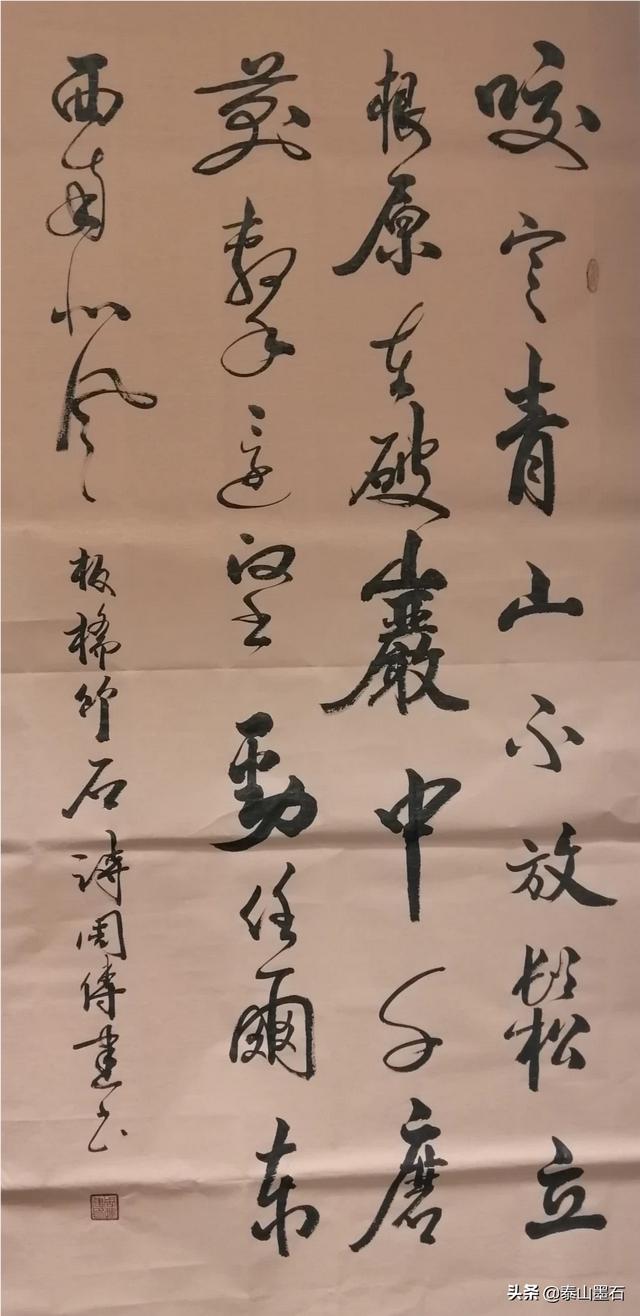 咬定青山不放鬆立
根原在破巖中千磨
萬擊還堅勁任爾東
西南北風
板橋竹石詩周傳建书
头条 @泰山墨石